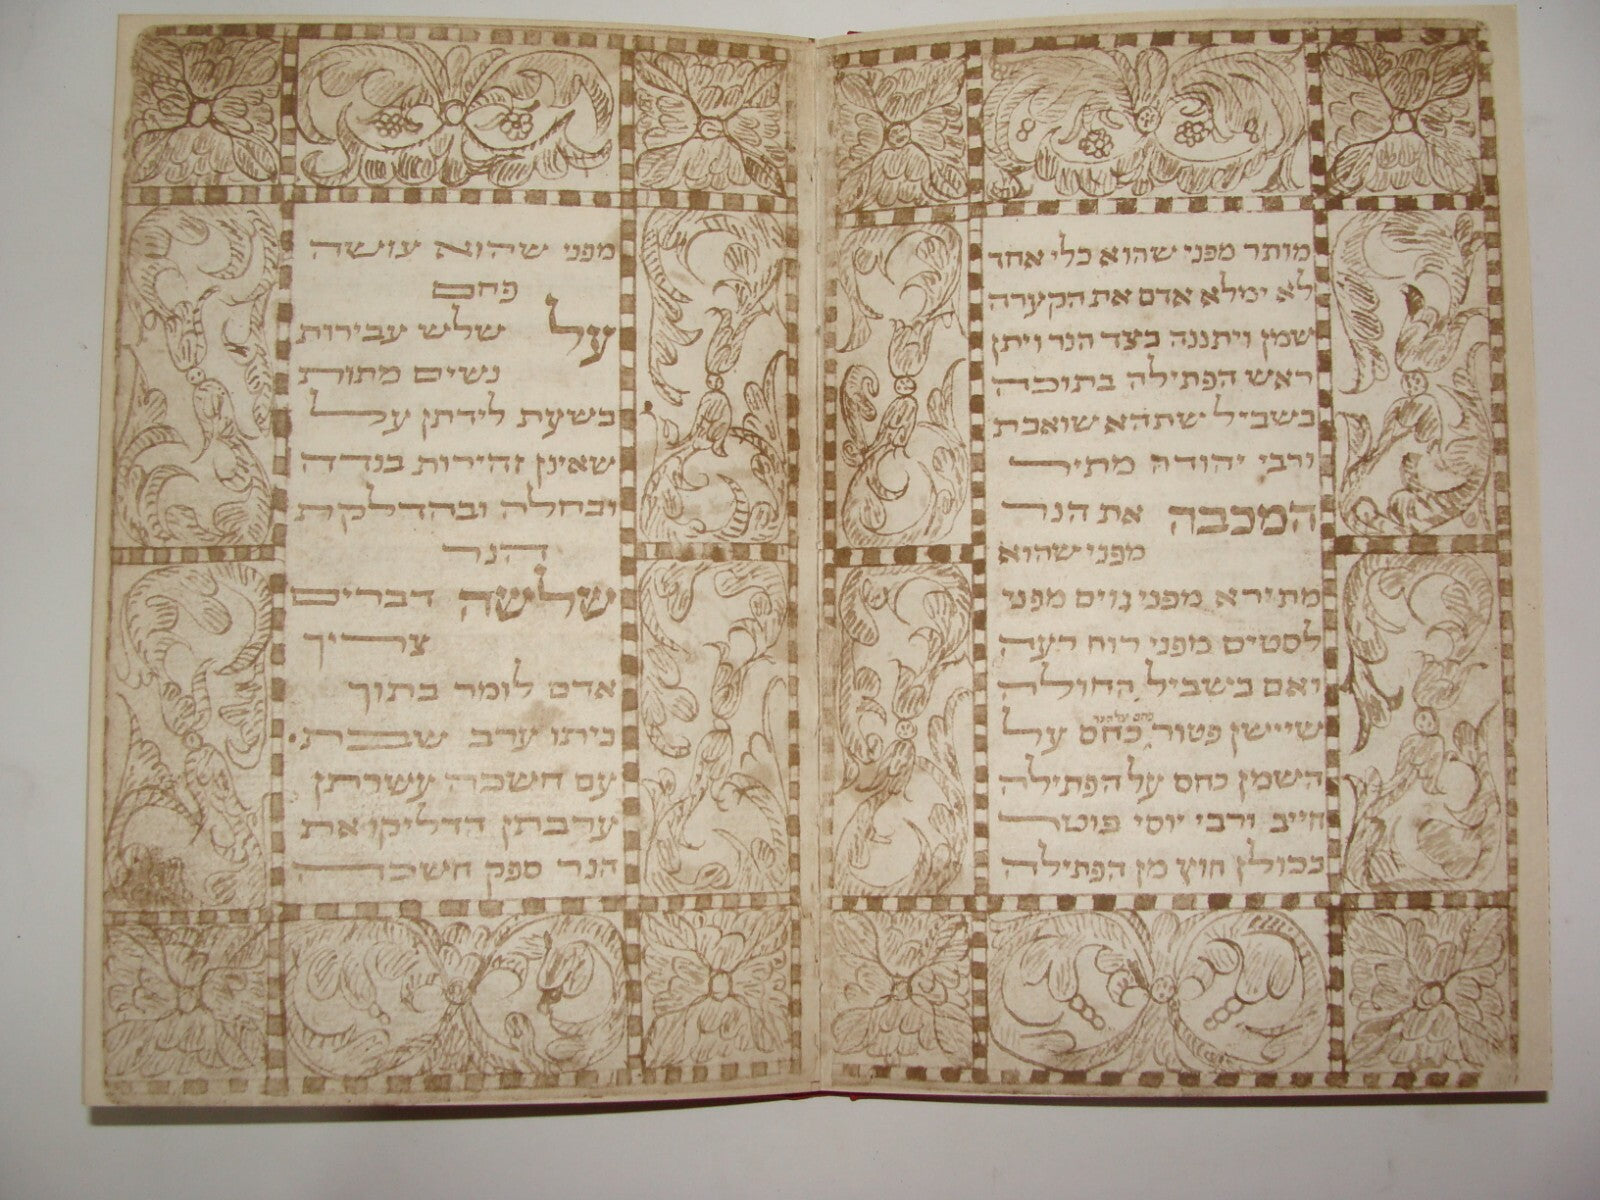 מותר מפני שהוא כלי אחד
לא ימלא אדם את הקערה
שמן ויתננה בצד הנר ויתן
ראש הפתילה בתוכה
בשביל שתהא שואבת
ורבי יהודה מתיר
המכבה את הנר
מפני שהוא
מתירא מפני גוים מפני
לסטים מפני רוח רעה
ואם בשביל החולה
שיישן פטור כחס על הנר כחס על
השמן כחס על הפתילה
חייב ורבי יוסי פוטר
בכולן חוץ מן הפתילה
מפני שהוא עושה
פחם
על שלש עבירות
נשים מתות
בשעת לידתן על
שאינן זהירות בנדה
ובחלה ובהדלקת
הנר
שלשה דברים
צריך
אדם לומר בתוך
ביתו ערב שבת
עם חשכה עשרתן
ערבתן הדליקו את
הנר ספק חשכה